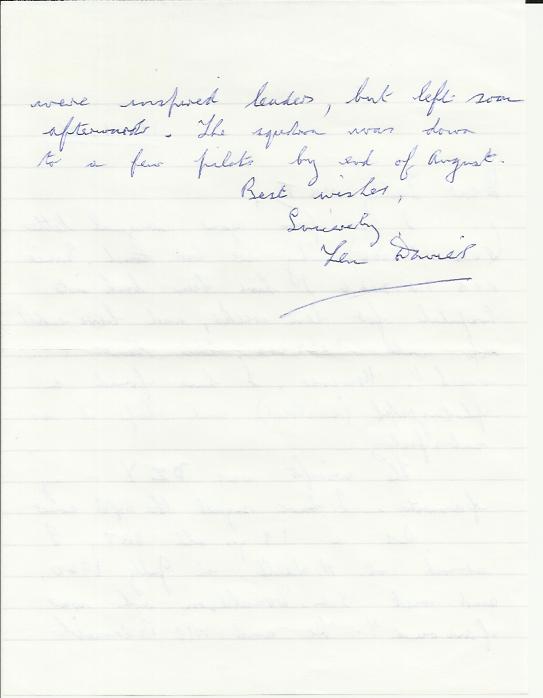 were inspired leaders, but left soon
afterwards. The squadron was down
to a few pilots by end of August.
Best wishes,
Sincerely
Len Davies